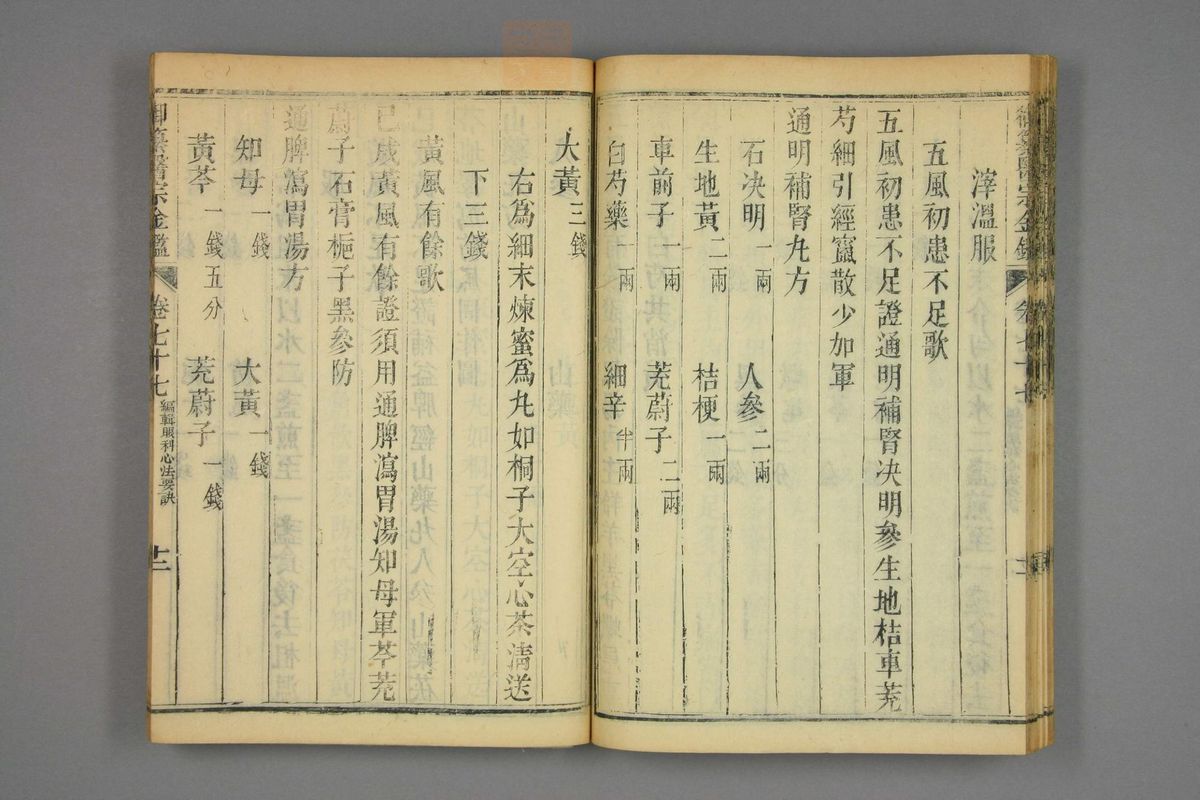 滓溫服
五風初患不足歌
五風初患不足證通明補腎决明參生地桔車茺
芍細引經竄散少加軍
通明補腎丸方
石决明一兩 人參二兩
生地黃二兩 桔梗一兩
車前子一兩 茺蔚子二兩
白芍藥一兩 細辛半兩
大黃三錢
右爲細末煉蜜爲丸如桐子大空心茶淸送
下三錢
黃風有餘歌
已成黃風有餘證須用通脾瀉胃湯知母軍芩茺
蔚子石膏梔子黑參防
通脾瀉胃湯方
知母一錢 大黃一錢
黃芩一錢五分 茺蔚子一錢
御纂醫宗金鑑 卷七十七 編輯眼科心法要訣 十二